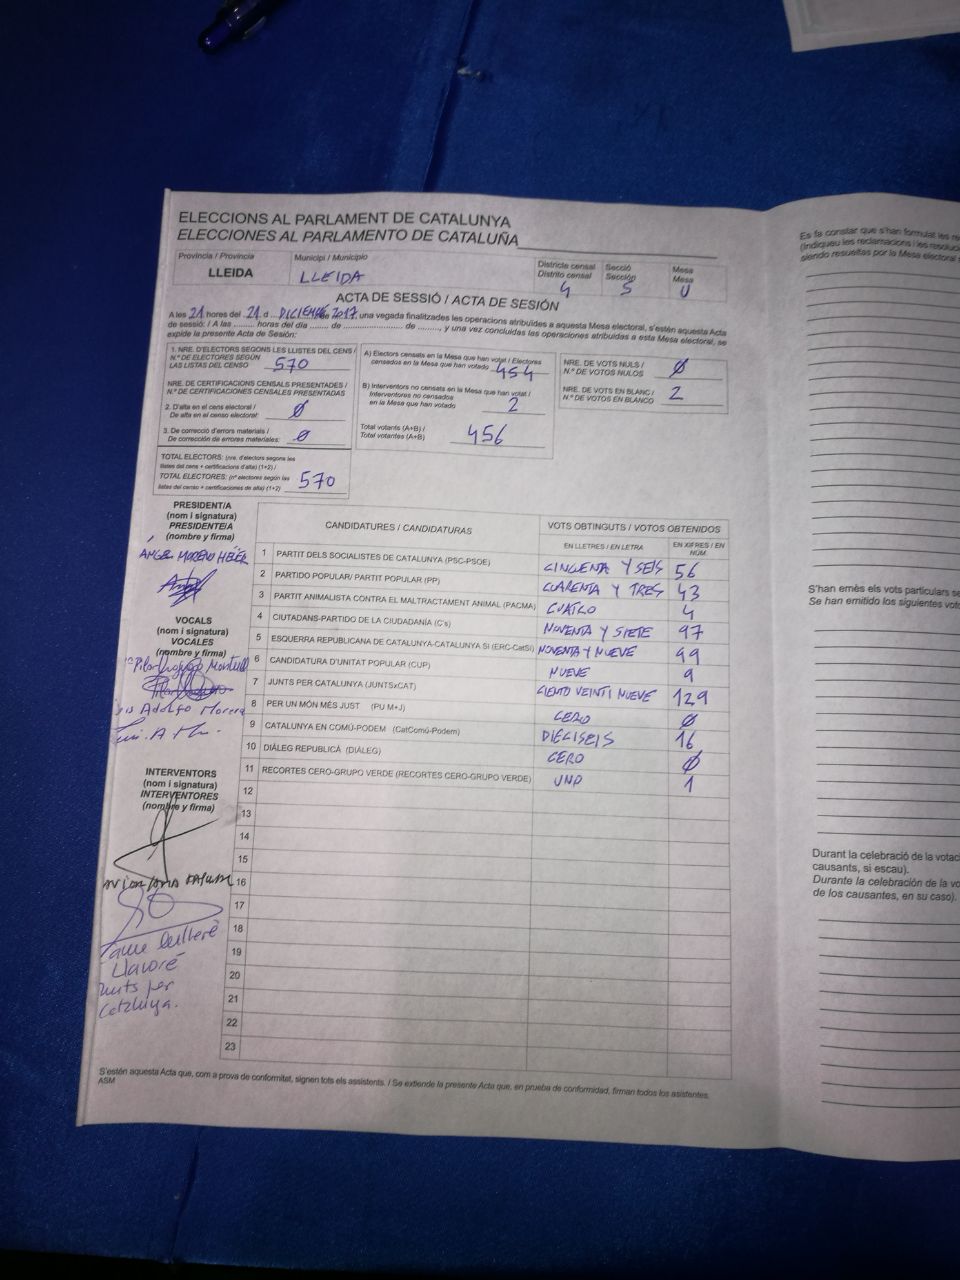 ELECCIONS AL PARLAMENT DE CATALUNYA
ELECCIONES AL PARLAMENTO DE CATALUÑA
Província / Provincia
LLEIDA
Municipi / Municipio
LLEIDA
Districte censal
Distrito censal
4
Secció
Sección
5
Mesa
Mesa
U
ACTA DE SESSIÓ / ACTA DE SESIÓN
A les 21 hores del 21 d DICIEMBRE de 2017, una vegada finalitzades les operacions atribuïdes a aquesta Mesa electoral, s'estén aquesta Acta
de sessió: / A las ......... horas del día ...... de .................. de ........, y una vez concluidas las operaciones atribuidas a esta Mesa electoral, se
expide la presente Acta de Sesión:
1. NRE. D'ELECTORS SEGONS LES LLISTES DEL CENS /
N.º DE ELECTORES SEGÚN
LAS LISTAS DEL CENSO 570
NRE. DE CERTIFICACIONS CENSALS PRESENTADES /
N.º DE CERTIFICACIONES CENSALES PRESENTADAS
2. D'alta en el cens electoral /
De alta en el censo electoral: 0
3. De correcció d'errors materials /
De corrección de errores materiales: 0
TOTAL ELECTORS: (nre. d'electors segons les
llistes del cens + certificacions d'alta) (1+2) /
TOTAL ELECTORES: (nº electores según las
listas del censo + certificaciones de alta) (1+2) 570
A) Electors censats en la Mesa que han votat / Electores
censados en la Mesa que han votado 454
B) Interventors no censats en la Mesa que han votat /
Interventores no censados
en la Mesa que han votado 2
Total votants (A+B) /
Total votantes (A+B) 456
NRE. DE VOTS NULS /
N.º DE VOTOS NULOS 0
NRE. DE VOTS EN BLANC /
N.º DE VOTOS EN BLANCO 2
PRESIDENT/A
(nom i signatura)
PRESIDENTE/A
(nombre y firma)
ÁNGEL MORENO
VOCALS
(nom i signatura)
VOCALES
(nombre y firma)
Pilar
Adolfo Morera
INTERVENTORS
(nom i signatura)
INTERVENTORES
(nombre y firma)
Llavoré
Junts per
Catalunya.
CANDIDATURES / CANDIDATURAS
VOTS OBTINGUTS / VOTOS OBTENIDOS
EN LLETRES / EN LETRA
EN XIFRES / EN NÚM.
1 PARTIT DELS SOCIALISTES DE CATALUNYA (PSC-PSOE) CINCUENTA Y SEIS 56
2 PARTIDO POPULAR/ PARTIT POPULAR (PP) CUARENTA Y TRES 43
3 PARTIT ANIMALISTA CONTRA EL MALTRACTAMENT ANIMAL (PACMA) CUATRO 4
4 CIUTADANS-PARTIDO DE LA CIUDADANÍA (C's) NOVENTA Y SIETE 97
5 ESQUERRA REPUBLICANA DE CATALUNYA-CATALUNYA SÍ (ERC-CatSí) NOVENTA Y NUEVE 99
6 CANDIDATURA D'UNITAT POPULAR (CUP) NUEVE 9
7 JUNTS PER CATALUNYA (JUNTSxCAT) CIENTO VEINTI NUEVE 129
8 PER UN MÓN MÉS JUST (PU M+J) CERO 0
9 CATALUNYA EN COMÚ-PODEM (CatComú-Podem) DIECISEIS 16
10 DIÀLEG REPUBLICÀ (DIÀLEG) CERO 0
11 RECORTES CERO-GRUPO VERDE (RECORTES CERO-GRUPO VERDE) UNO 1
12
13
14
15
16
17
18
19
20
21
22
23
S'estén aquesta Acta que, com a prova de conformitat, signen tots els assistents. / Se extiende la presente Acta que, en prueba de conformidad, firman todos los asistentes.
ASM
Es fa constar que s'han formulat les
(Indiqueu les reclamacions i les
siendo resueltas por la Mesa electoral
S'han emès els vots particulars
Se han emitido los siguientes
Durant la celebració de la
causants, si escau).
Durante la celebración de la
de los causantes, en su caso).